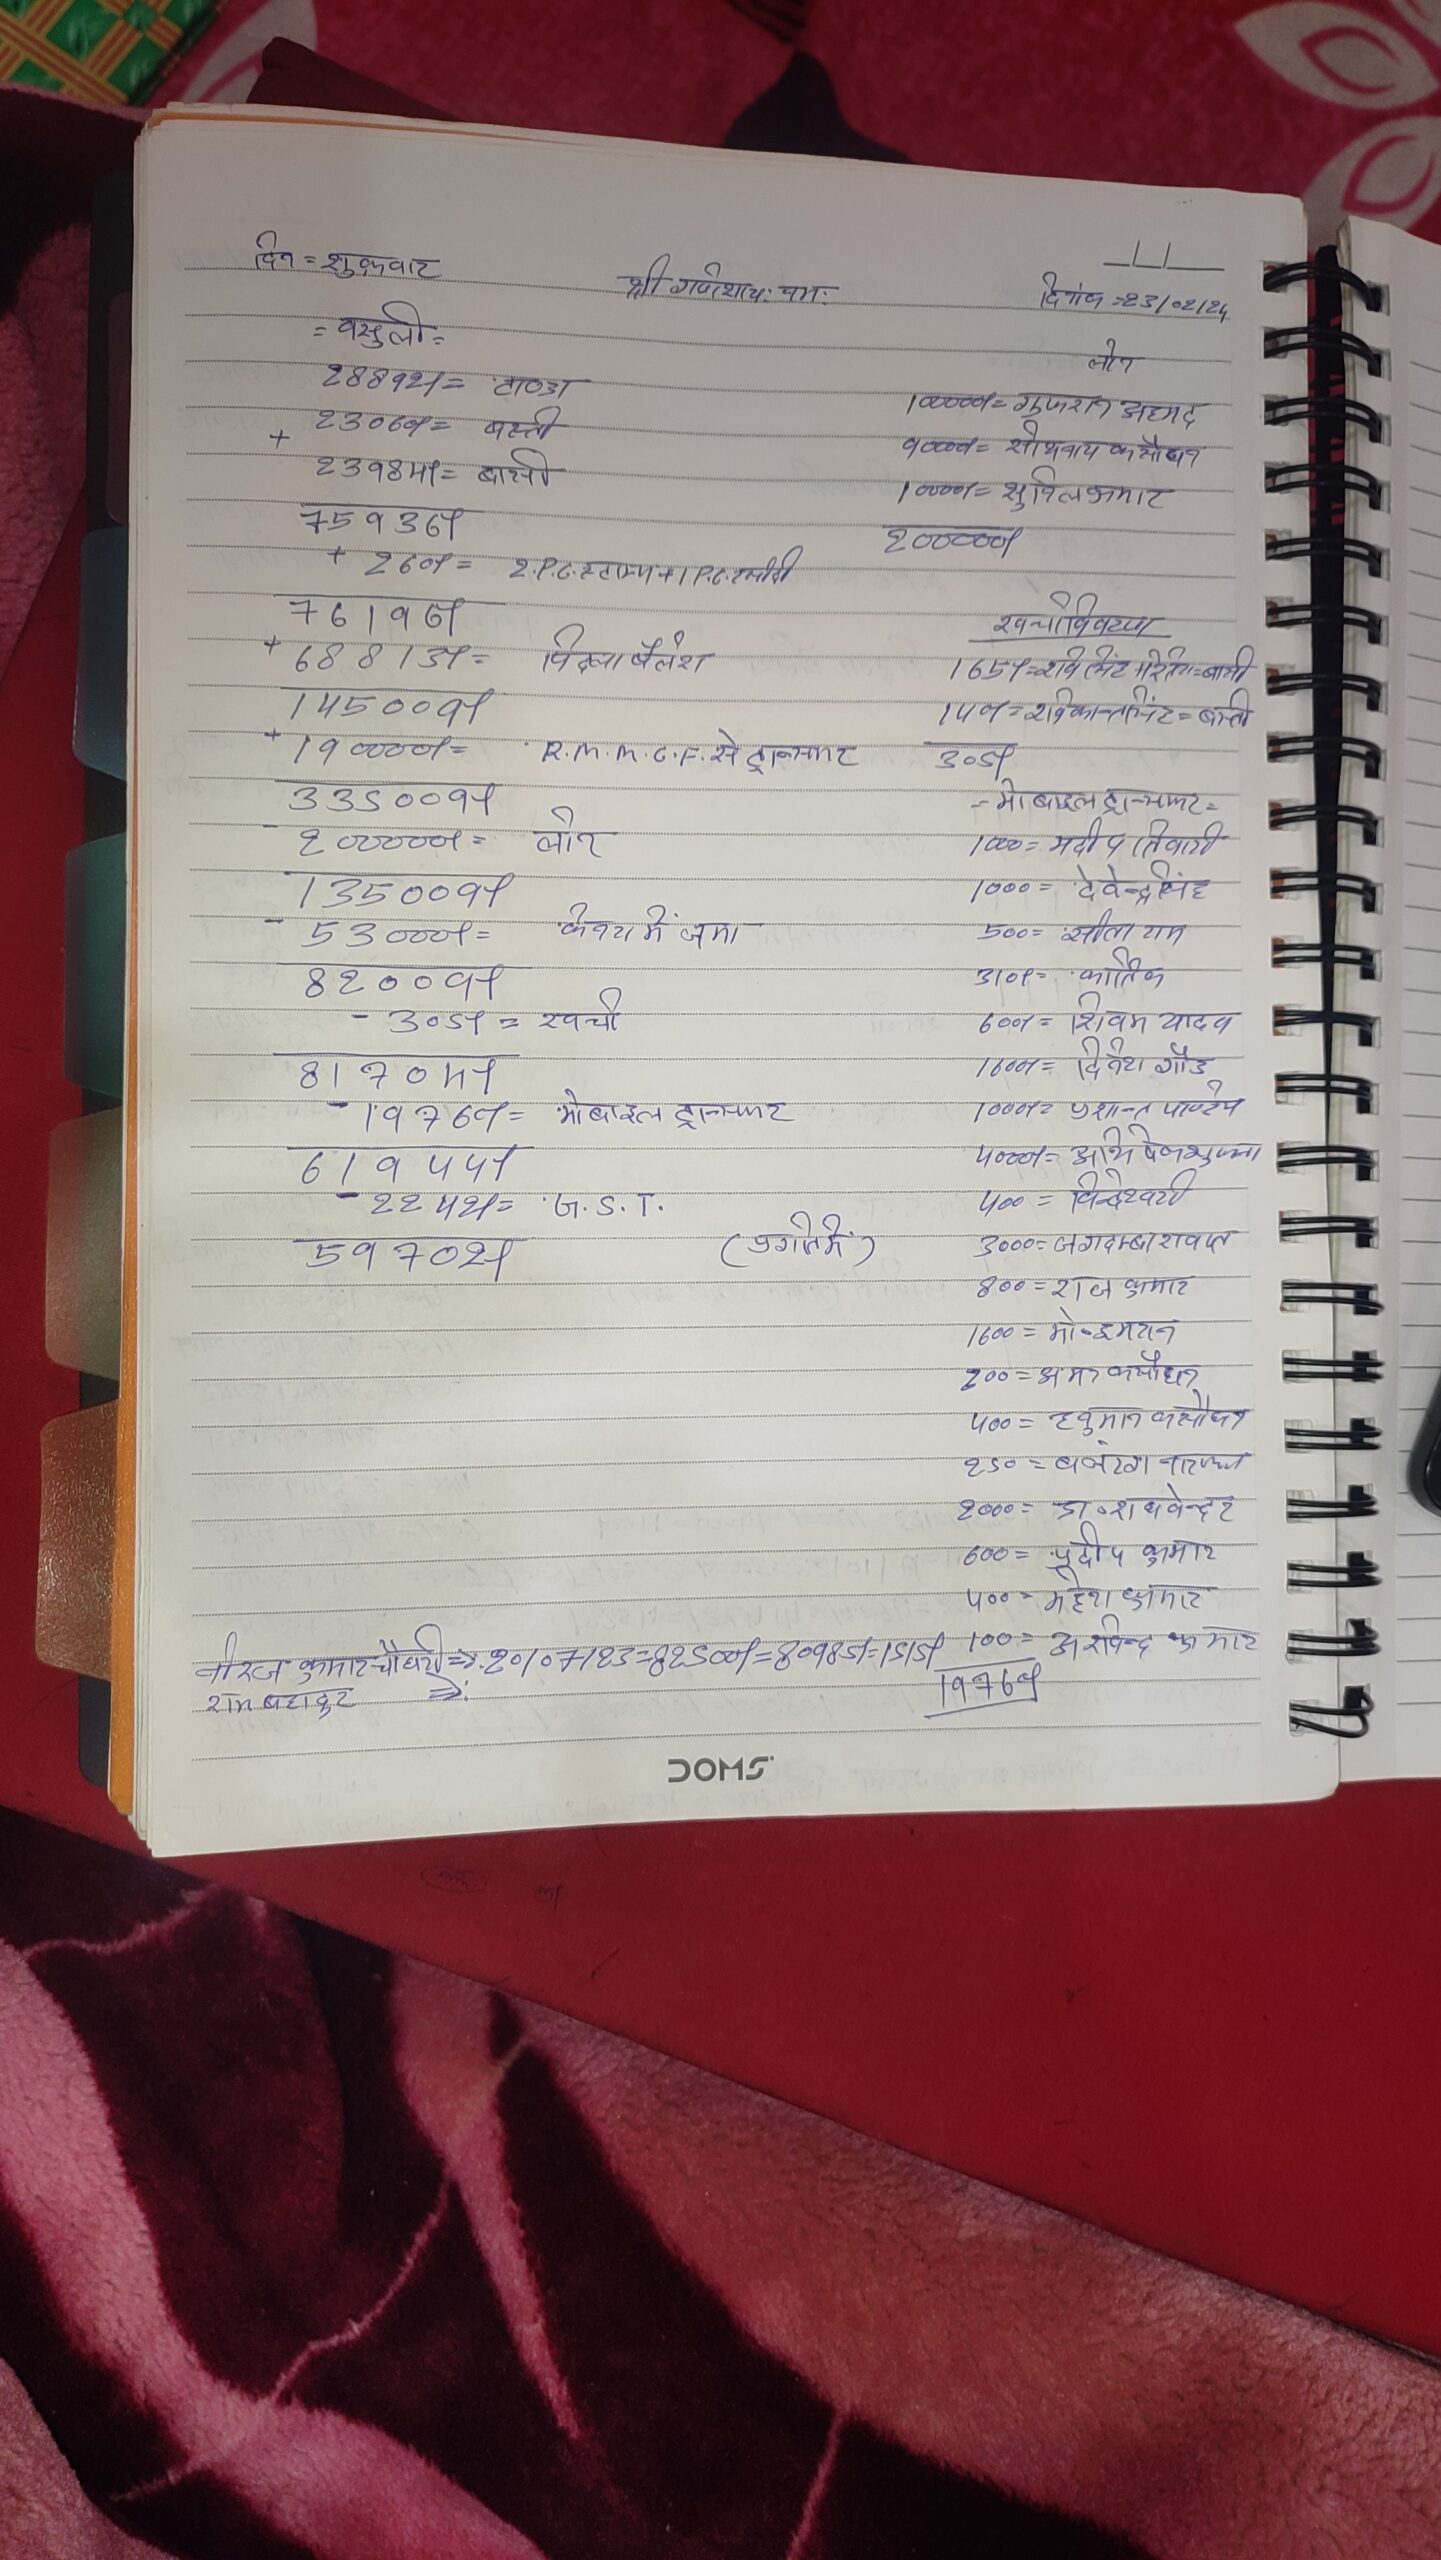 दिन = शुक्रवार
श्री गणेशाय: नम:
दिनांक = 23/02/24
= वसुली =
28892/- = टाण्डा
+ 23060/- = बस्ती
23984/- = बासी
75936/-
+ 260/- = 2.P.C. स्टाम्प + 1 P.C. रसीद
76196/-
+ 68813/- = पिछला बैलेंश
145009/-
+ 190000/- = R.M.M.C.F. से ट्रान्सफर
335009/-
- 200000/- = लोन
135009/-
- 53000/- = केनरा में जमा
82009/-
- 305/- = खर्चा
81704/-
- 19760/- = मोबाइल ट्रान्सफर
61944/-
- 2242/- = G.S.T.
59702/- (प्रगति में)
लोन
100000/- = गुफरान अहमद
90000/- = सोभनाथ कसौधन
10000/- = सुनिल कुमार
200000/-
खर्चा विवरण
165/- = रवि सिंह = बासी
140/- = रविकान्त सिंह = बस्ती
305/-
= मोबाइल ट्रान्सफर =
1000 = प्रदीप तिवारी
1000 = देवेन्द्र सिंह
500 = सीताराम
310/- = कार्तिक
600/- = शिवम यादव
1600/- = दिनेश गौड
1000/- = प्रशान्त पाण्डेय
4000/- = अभिषेक गुप्ता
400 = विन्देश्वरी
3000 = जगदम्बा रावत
800 = राज कुमार
1600 = मो॰ इमरान
200 = अमन कसौधन
400 = हनुमान कसौधन
250 = बजरंग
2000 = डा॰ राघवेन्द्र
600 = प्रदीप कुमार
400 = महेश कुमार
100 = अरविन्द कुमार
19760/-
नीरज कुमार चौधरी => 20/07/23 = 82500/- = 80985/- = 1515/-
राम बहादुर =>
DOMS